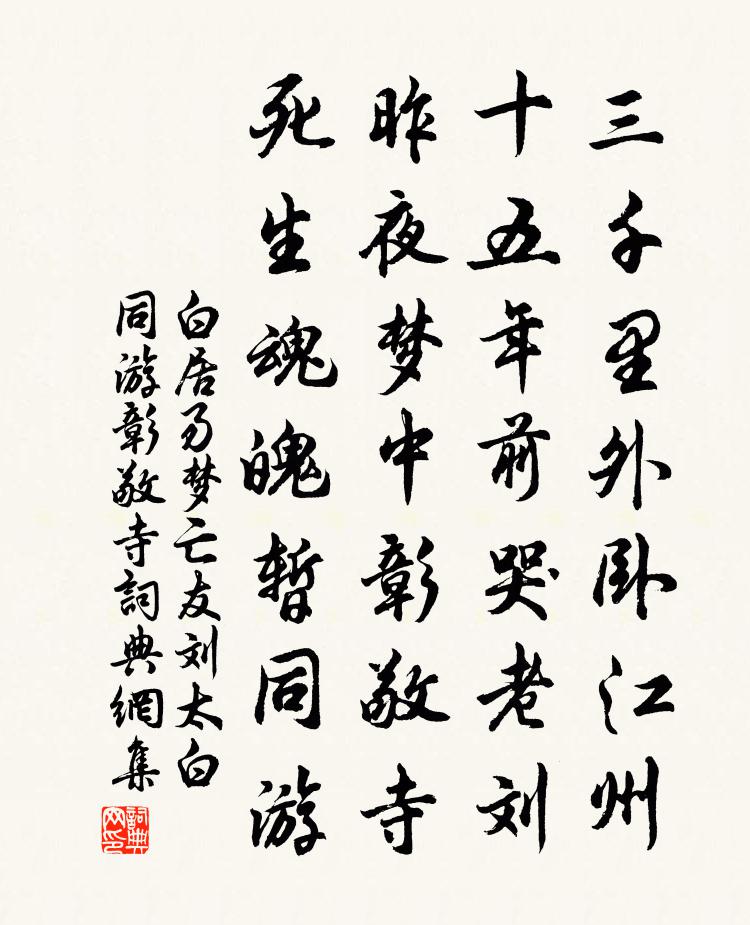 三千里外卧江州
十五年前哭老刘
昨夜梦中彰敬寺
死生魂魄暂同游
白居易梦亡友刘太白
同游彰敬寺詞典網集
詞典
网印